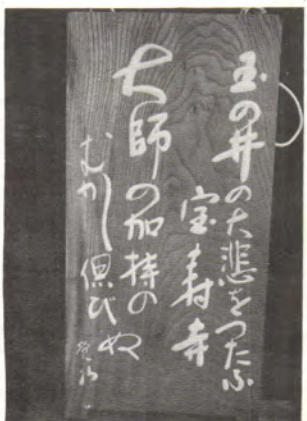 玉の井の大悲をつたふ
宝寿寺
大師の加持の
むかし偲びぬ